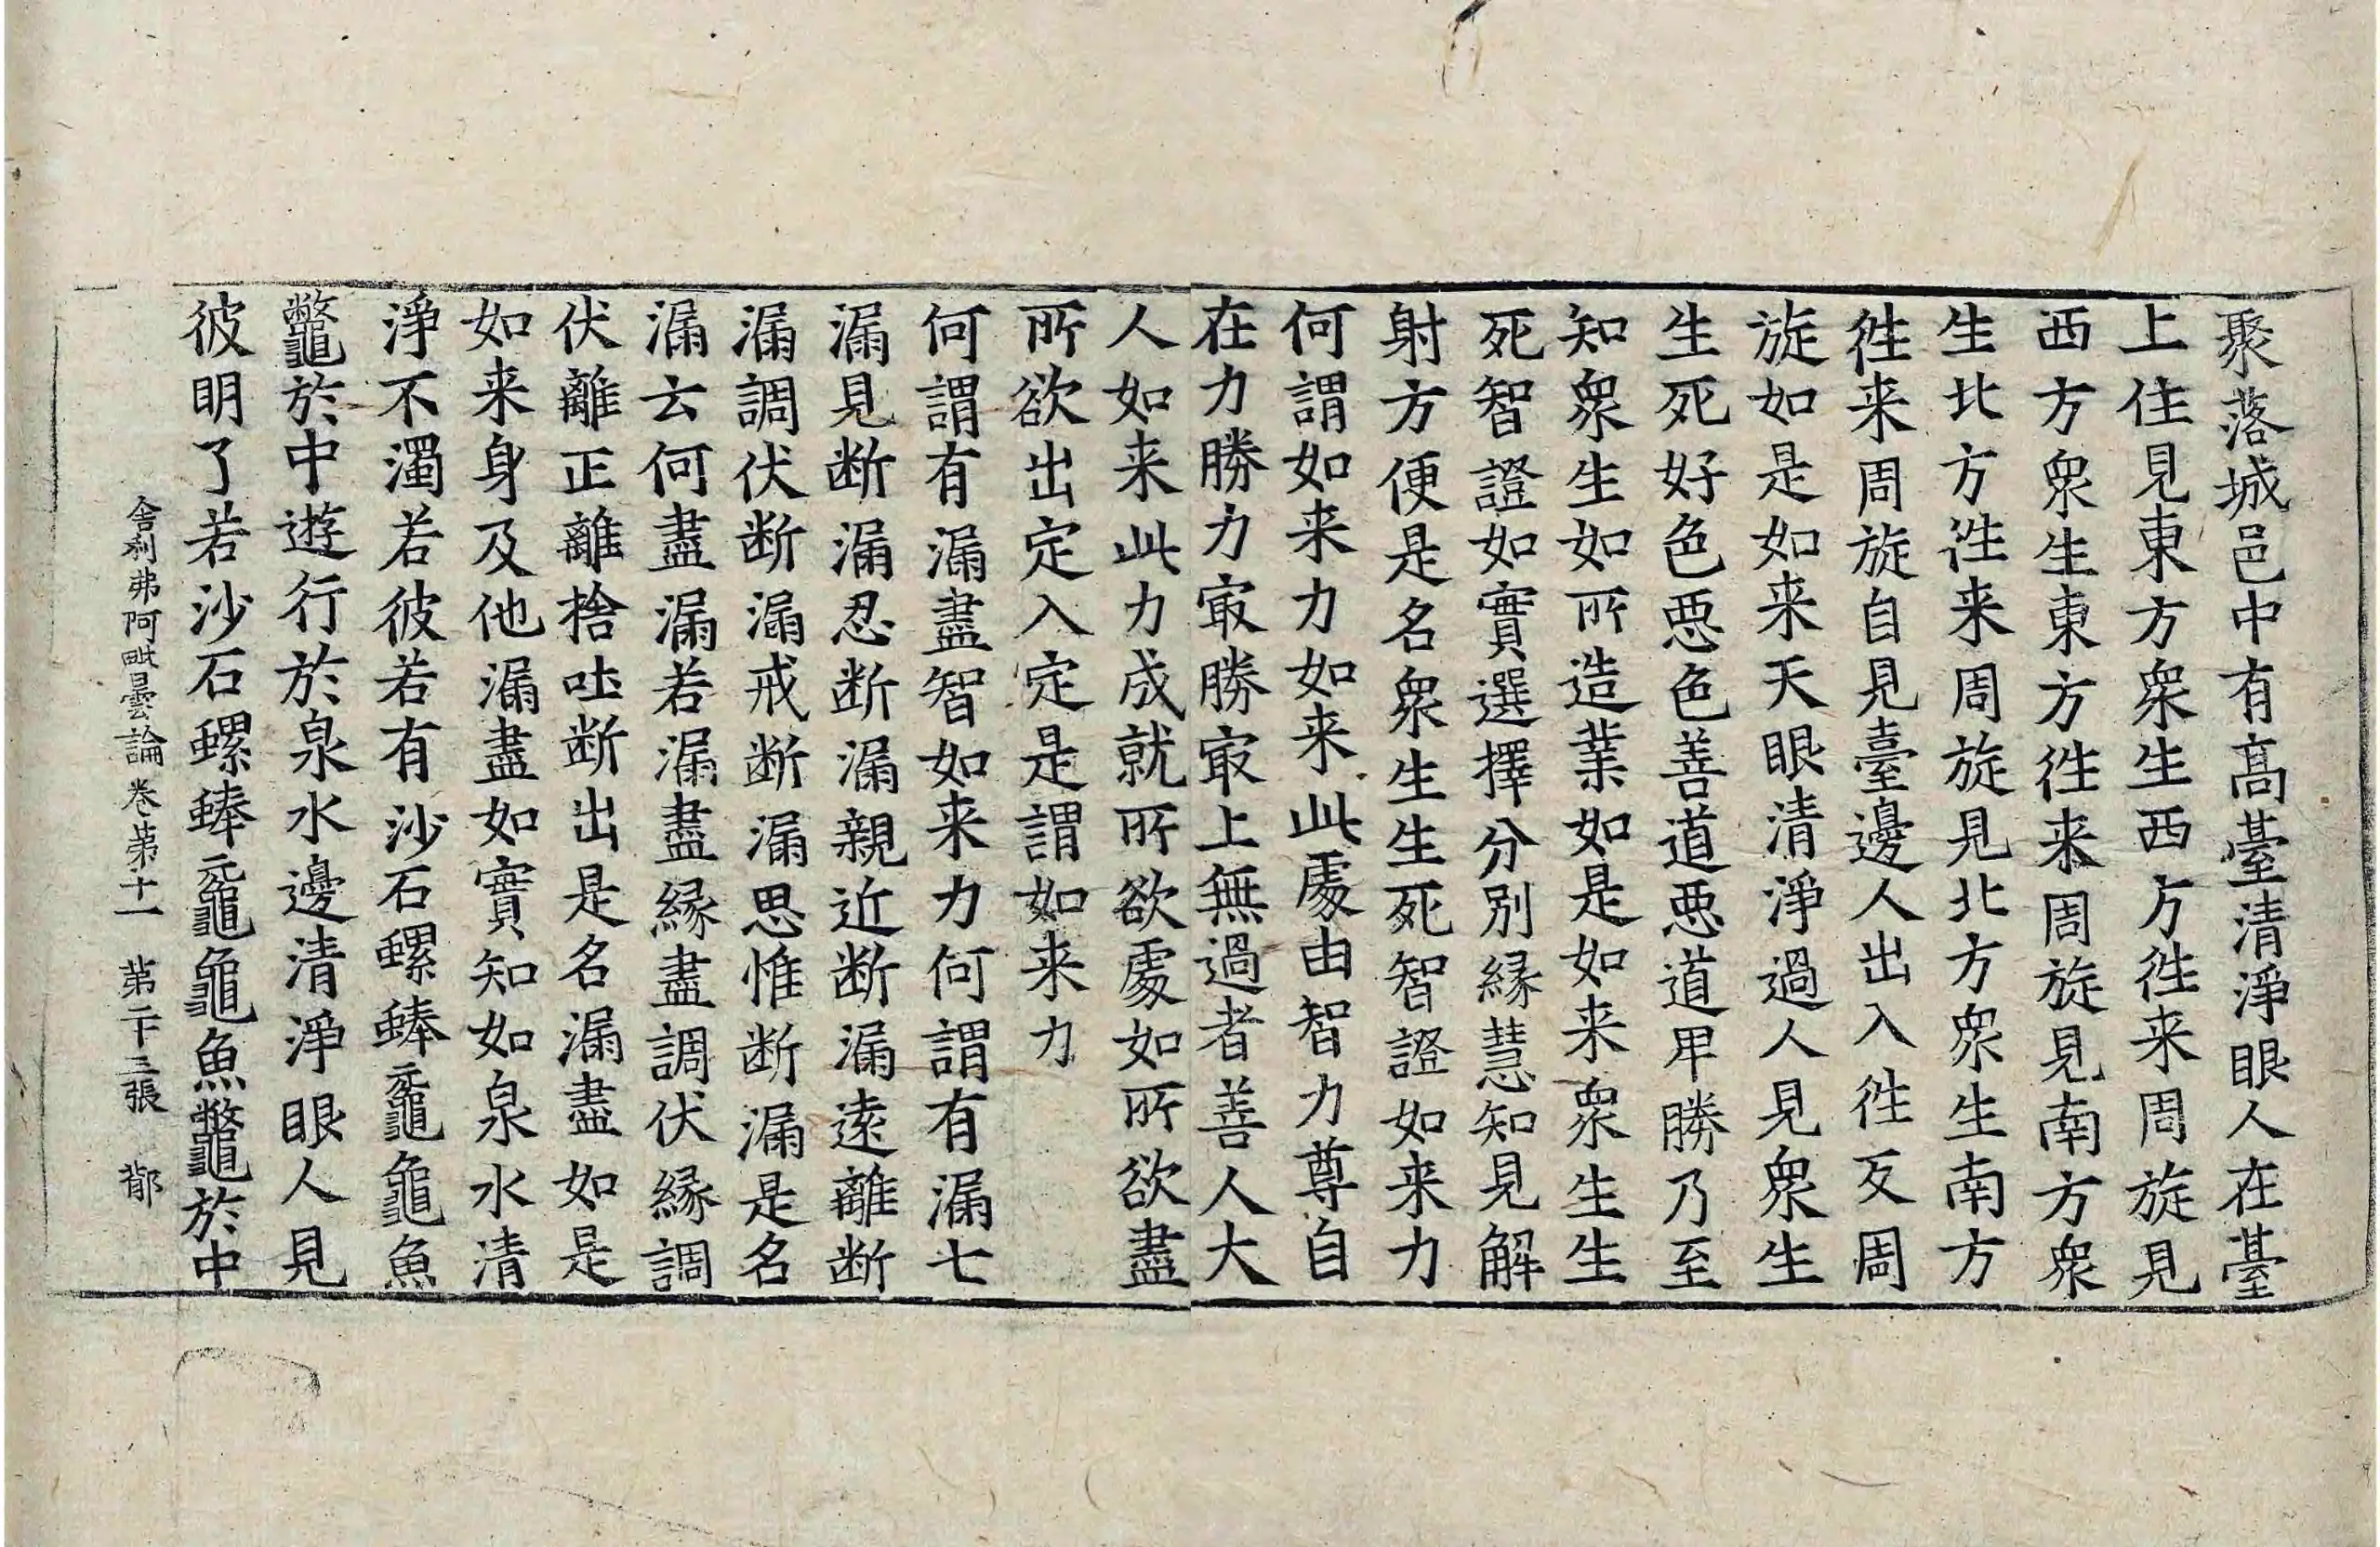 聚落城邑中有高臺清淨眼人在臺
上住見東方衆生西方徃来周旋見
西方衆生東方徃来周旋見南方衆
生北方徃来周旋見北方衆生南方
徃来周旋自見臺邊人出入徃反周
旋如是如来天眼清淨過人見衆生
生死好色惡色善道惡道卑勝乃至
知衆生如所造業如是如来衆生生
死智證如實選擇分別緣慧知見解
射方便是名衆生生死智證如来力
何謂如来力如来此處由智力尊自
在力勝力㝡勝㝡上無過者善人大
人如来此力成就所欲處如所欲盡
所欲出定入定是謂如来力
何謂有漏盡智如来力何謂有漏七
漏見断漏忍断漏親近断漏遠離断
漏調伏断漏戒断漏思惟断漏是名
漏云何盡漏若漏盡緣盡調伏緣調
伏離正離捨吐断出是名漏盡如是
如来身及他漏盡如實知如泉水清
淨不濁若彼若有沙石螺蜯黿龜魚
鼈於中遊行於泉水邊清淨眼人見
彼明了若沙石螺蜯黿龜魚鼈於中
舍利弗阿毗曇論卷第十一 第二十三張